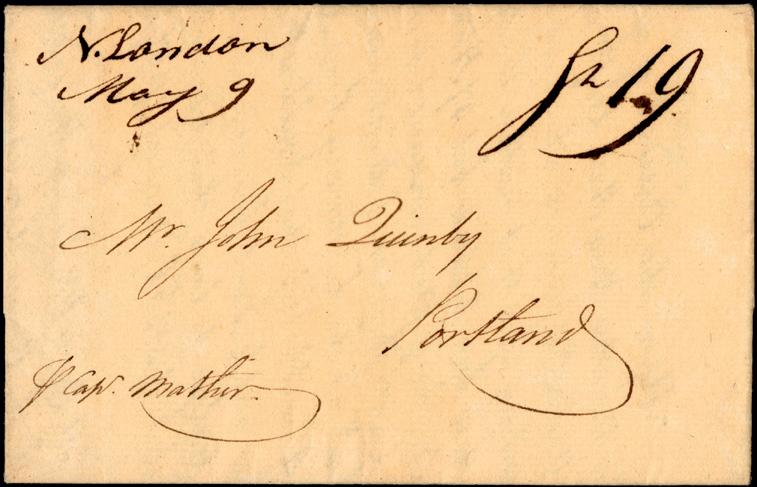 N. London
May 9
Sh 19
Mr. John Quinby
Portland
℘ Cap. Mather.